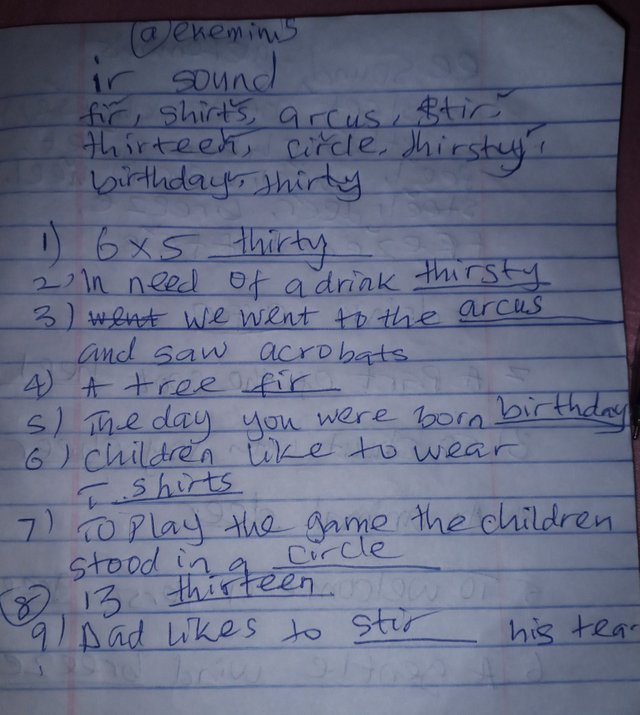 @ekeminis
ir sound
fir, shirts, arcus, stir,
thirteen, circle, thirsty,
birthday, thirty
1) 6 x 5 thirty
2) In need of a drink thirsty
3) went we went to the arcus
and saw acrobats
4) A tree fir
5) The day you were born birthday
6) children like to wear
T. shirts
7) To play the game the children
stood in a circle
8 13 thirteen.
9) Dad likes to stir his tea.